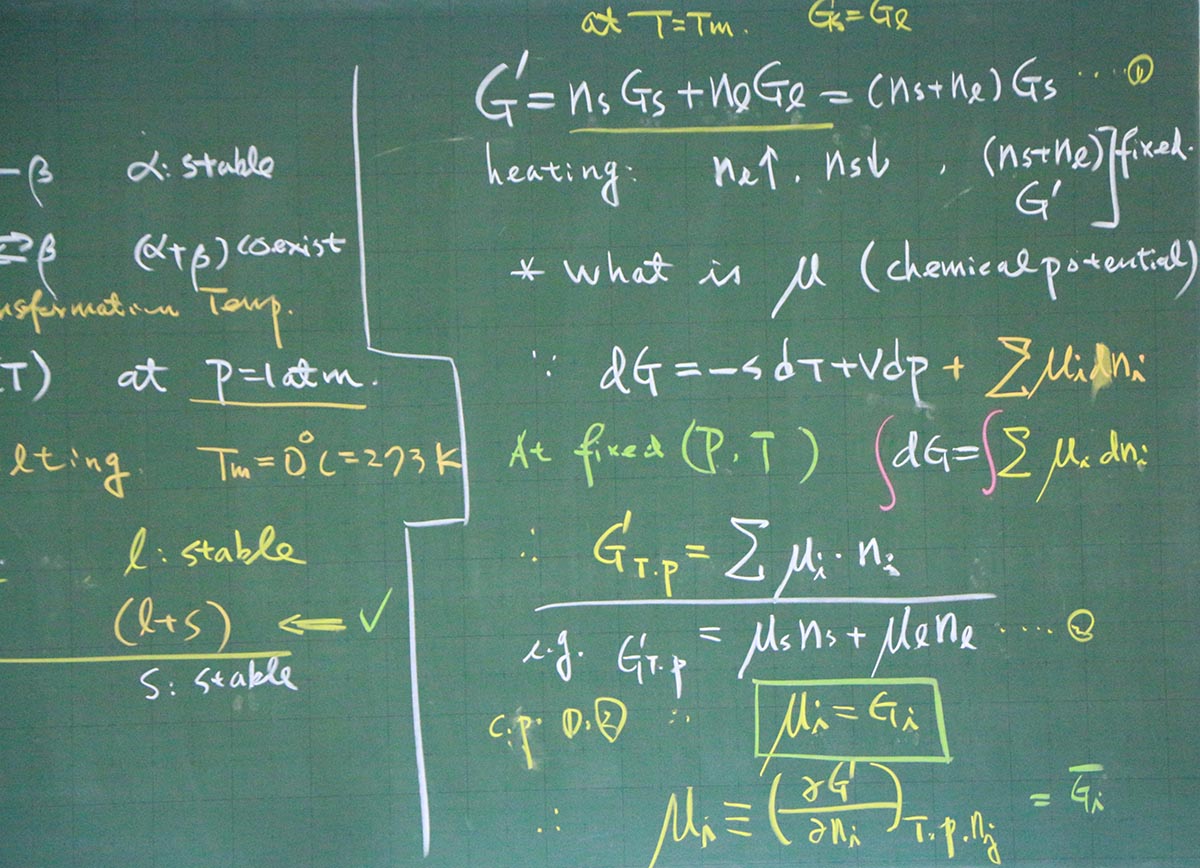 – β   α: stable
⇄ β   (α+β) coexist
nsformation Temp.
(T) at P=1atm.
lting. Tm=0°C=273K
l: stable
(l+s) ⇐ ✓
s: stable
at T=Tm. Gs=Gl
G'=nsGs+nlGl=(ns+nl)Gs ····①
heating: nl↑. ns↓ , (ns+nl) G'] fixed.
* what is μ (chemical potential)
∵ dG=-SdT+VdP+∑μidni
At fixed (P.T) ∫dG=∫∑μidni
∴ G'T.p=∑μi·ni
e.g. G'T.p=μsns+μlnl ····②
c.p. ①.② ∴ μi=Gi
∴ μi≡(∂G'/∂ni)T.p.nj = G̅i